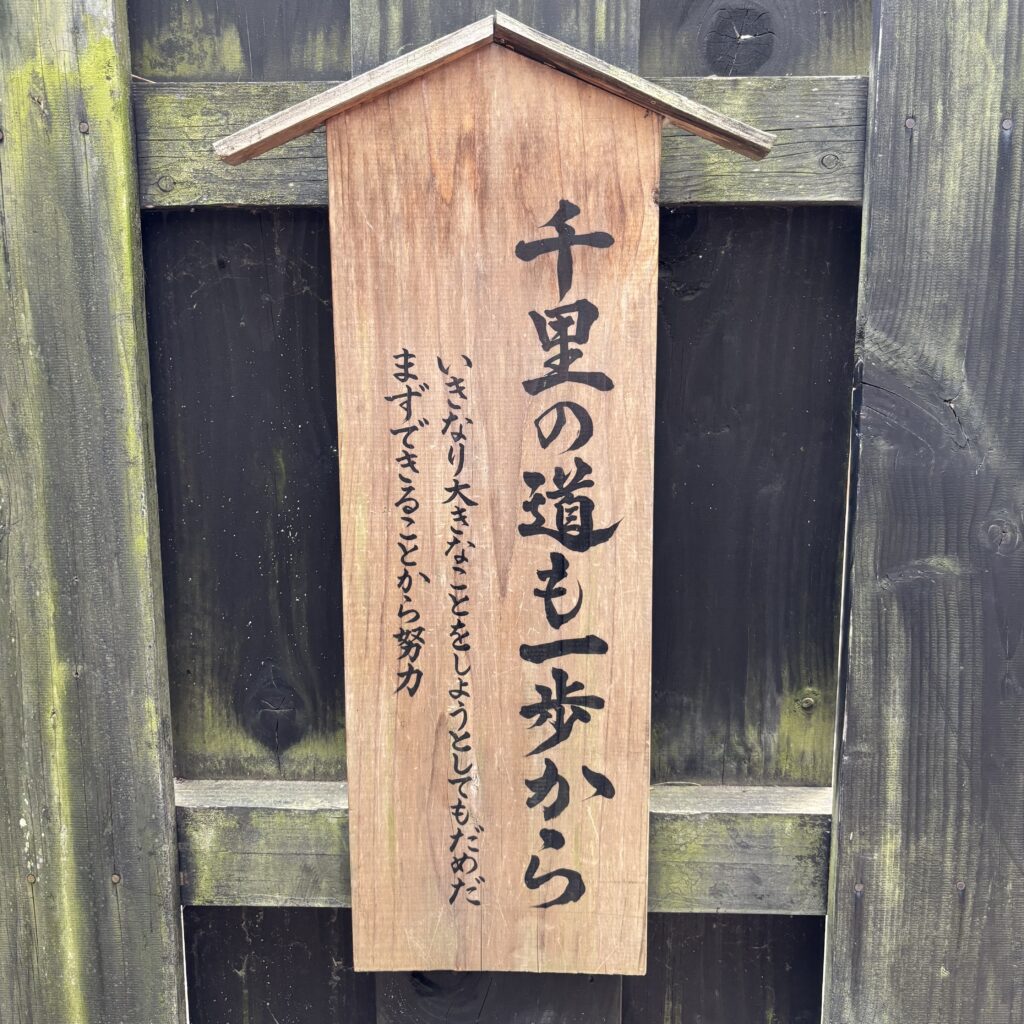 千里の道も一歩から
いきなり大きなことをしようとしてもだめだ
まずできることから努力